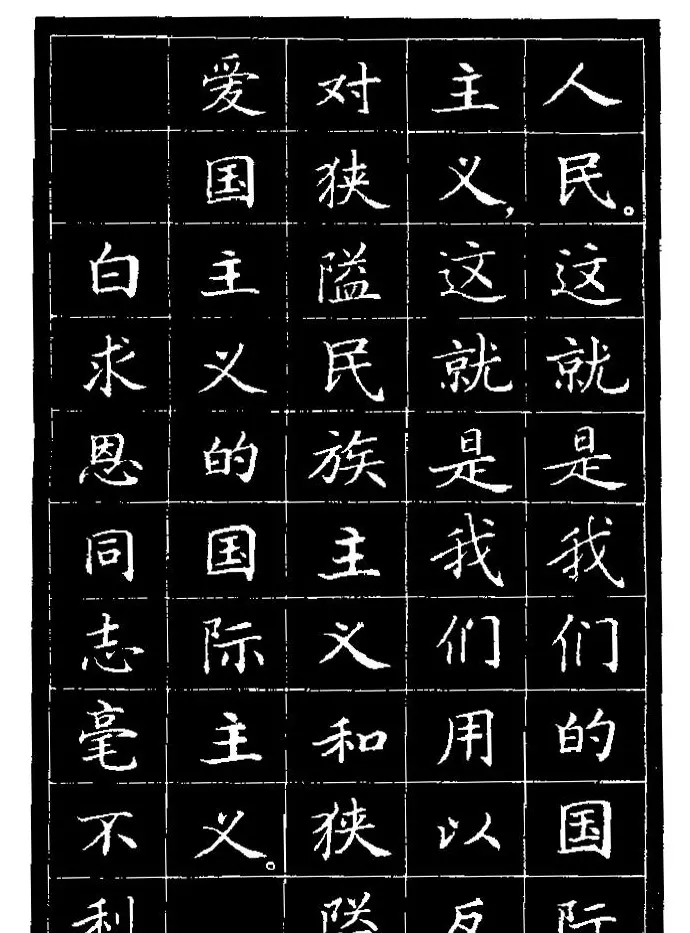 人民。这就是我们的国际
主义，这就是我们用以反
对狭隘民族主义和狭隘
爱国主义的国际主义。
白求恩同志毫不利